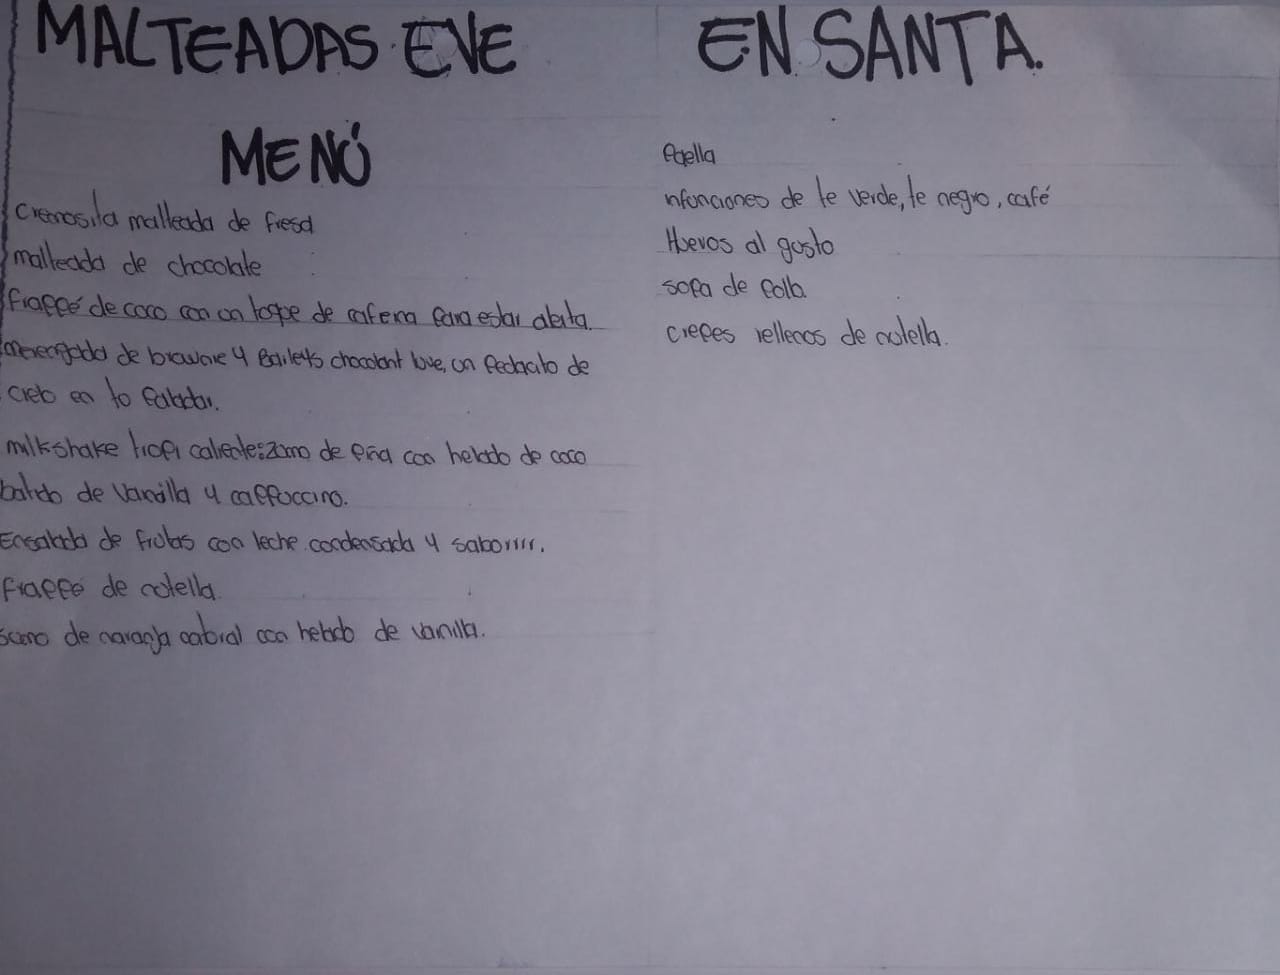 MALTEADAS EVE EN SANTA.
MENÚ
cremosita malteada de fresa
malteada de chocolate
frappé de coco con un toque de cafeina para estar alerta.
merengada de brawnie y Baileys chocolant love, un pedacito de
cielo en tu paladar.
milkshake tropi caliente: zumo de piña con helado de coco
batido de vainilla y cappuccino.
Ensalada de frutas con leche condensada y saborrrr.
frappé de nutella.
sumo de naranja natural con helado de vainilla.
Paella
infunciones de te verde, te negro, café
Huevos al gusto
sopa de pollo.
crepes rellenos de nutella.